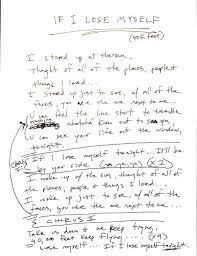 IF I LOSE MYSELF
(40K feet)
I stand up at the sun..
Thought of all of the places, people &
things I loved..
I stand up just to see, w/ all of the
faces, you were the one next to me..
U can feel the live start to tremble
whatcha know out to sea,
U can see your life out the window,
tonight
Chorus
If I lose myself tonight.. It'll be
by your side (x2)
I woke up of the sun, thought of all
the places, people & things I loved..
I woke up just to see, w/ all of the
faces, you were the one next to me...
CHORUS I
Take us down & we keep trying,
40,000 feet keep flying.. (x4)
Lose myself... If I lose myself tonight.